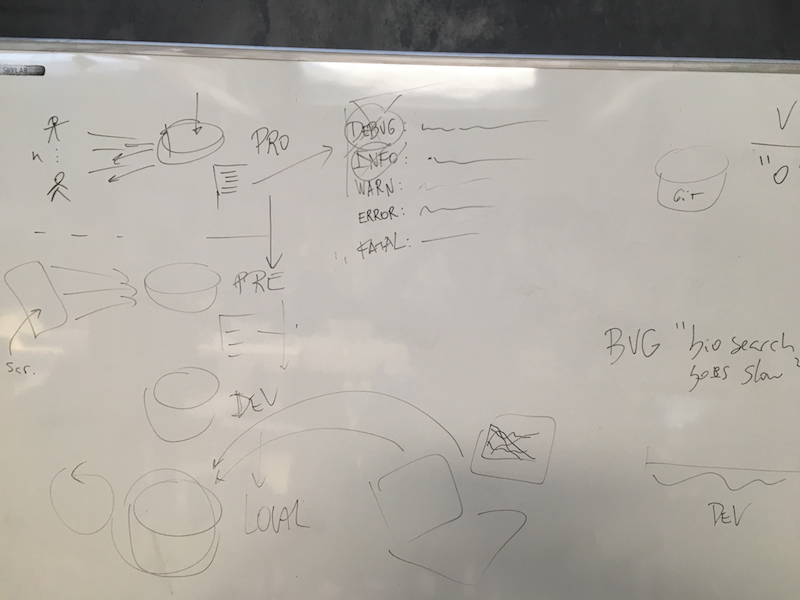 SKYLAB
n :
PRO
DEBUG:
INFO:
WARN:
ERROR:
FATAL:
PRE
scr.
DEV
LOCAL
V
"0"
Git
BUG "bio search
goes slow"
DEV